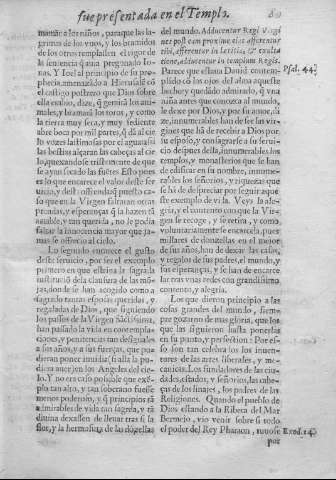 fue presentada en el Templo.
mamar a los niños, paraque las la-
grimas de los vnos, y los bramidos
de los otros templassen el rigor de
la sentencia q̃ una pregonado Io-
nas. Y Ioel al principio de su pro-
phecia, amenazado a Hierusalẽ cõ
el castigo postrero que Dios sobre
ella embio, dize, q̃ gemirá los ani-
males, y bramará los toros, y como
la tierra muy seca, y muy sedienta
abre boca por mil partes, q̃ dá al cie-
lo vozes lastimosas por el agua: assi
las bestias alçaran las cabeças al cie-
lo, quexandose tristemente de que
se ayan secado las fuẽtes. Esto pues
es lo que encarece el valor deste ser
uicio, y deste ofrenda, q̃ puesto ca-
so que en la Virgen faltaran otras
prendas, y esperanças q̃ la hazen tã
amable, y tan querida, no le podia
faltar la innocencia mayor que ja-
mas se ofrecio al cielo.
Lo segundo encarece el gusto
deste seruicio, por ser el exemplo
primero en que estriua la sagrada
institucion de la clausura de las mõ
jas, donde se han acogido como a
sagrado tantas esposas queridas, y
regaladas de Dios, que siguiendo
los passos de la Virgen Sãctissima,
han passado la vida en contempla-
ciones, y penitencias tan desiguales
a sus años, y a sus fuerças, que pu-
dieran poner imbidia si alla la pu-
diera auer, en los Angeles del cie-
lo. Y no era caso possible que exẽ-
plo tan alto, y tan soberano fuesse
menos poderoso, y q̃ principios tã
admirables de vida tan sagrada, y tã
diuina dexassen de lleuar tras si la
flor, y la hermosura de las dõzellas
del mundo. Adducentur Regi Virgi
nes post eam proxime eius afferentur
tibi, afferentur in letitia, & exulta
tione, adducentur in templum Regis.
Parece que estaua Dauid contem-
plando cõ los ojos del alma la que
la noche y quedãdo admirado, q̃ vna
niña antes que conozca al mundo,
le dexe por Dios, y por su amor, di-
ze, innumerables han de ser las vir-
gines que hã de recebir a Dios por
su esposo, y consagrarse a su serui-
cio despues desta, innumerables los
templos, y monasterios que se han
de edificar en su nombre, innume-
rables los señorios, y riquezas que
se hã de despreciar por seguir aquẽ
este exemplo de vida. Veys la ale-
gria, y el contento con que la Vir-
gen se recoge, y se retira, y como,
voluntariamente se encarcela, pues
millares de donzellas en el mejor
de sus años, han de dexar las casas,
y regalos de sus padres, el mundo, y
sus esperanças, y se han de encarce
lar tras vnas redes con grandissimo
contento, y alegria.
Los que dieron principio a las
cosas grandes del mundo, siem-
pre gozaron de mas gloria, que los
que las siguieron hasta ponerlas
en su punto, y perfection: Por es-
so son tan celebrados los inuen-
tores de las artes liberales, y me-
canicas. Los fundadores de las ciu-
dades, estados, y señorios, las cabe-
ças de los linajes, los padres de las
Religiones. Quando el pueblo de
Dios estando a la Ribera del Mar
Bermejo, vio venir sobre si todo
el poder del Rey Pharaon, tuuose
por
Psal. 44.
Exod. 14.